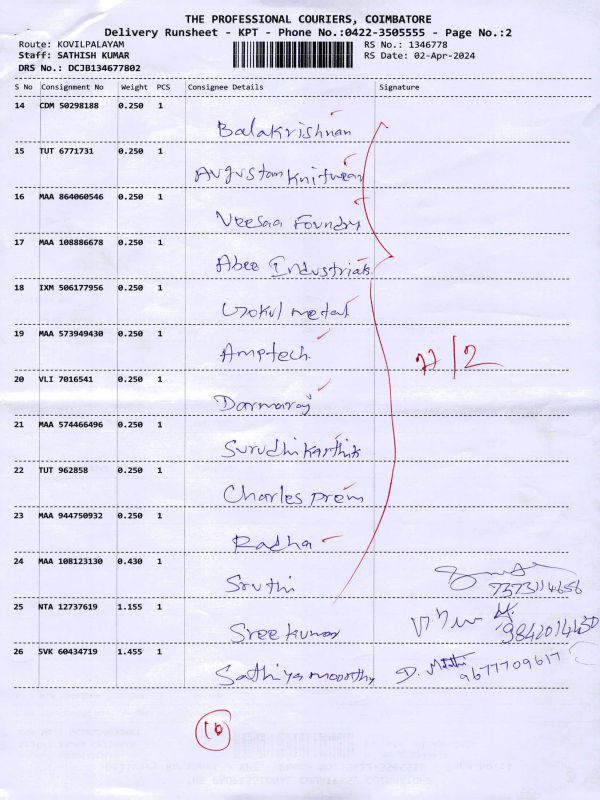 THE PROFESSIONAL COURIERS, COIMBATORE
Delivery Runsheet - KPT - Phone No.:0422-3505555 - Page No.:2
Route: KOVILPALAYAM RS No.: 1346778
Staff: SATHISH KUMAR RS Date: 02-Apr-2024
DRS No.: DCJB134677802
S No Consignment No Weight PCS Consignee Details Signature
14 CDM 50298188 0.250 1
Balakrishnan
15 TUT 6771731 0.250 1
Augustan Knitwear
16 MAA 864060546 0.250 1
Veesaa Foundry
17 MAA 108886678 0.250 1
Abee Industrials
18 IXM 506177956 0.250 1
Gokul metal
19 MAA 573949430 0.250 1
Amptech.
20 VLI 7016541 0.250 1
Darmaraj
21 MAA 574466496 0.250 1
Surudhi Karthik
22 TUT 962858 0.250 1
Charles prem
23 MAA 944750932 0.250 1
Radha
24 MAA 108123130 0.430 1
Sruthi 7373114656
25 NTA 12737619 1.155 1
Sree kumar
26 SVK 60434719 1.455 1
Sathiyamoorthy D. 9677709617
10